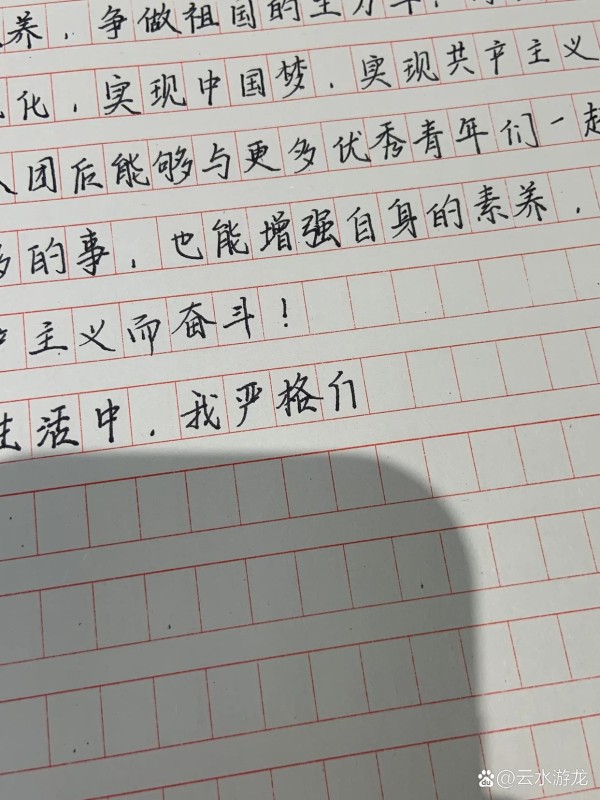 养，争做祖国的生力军，
化，实现中国梦，实现共产主义
入团后能够与更多优秀青年们一起
多的事，也能增强自身的素养，
产主义而奋斗！
生活中，我严格们
云水游龙